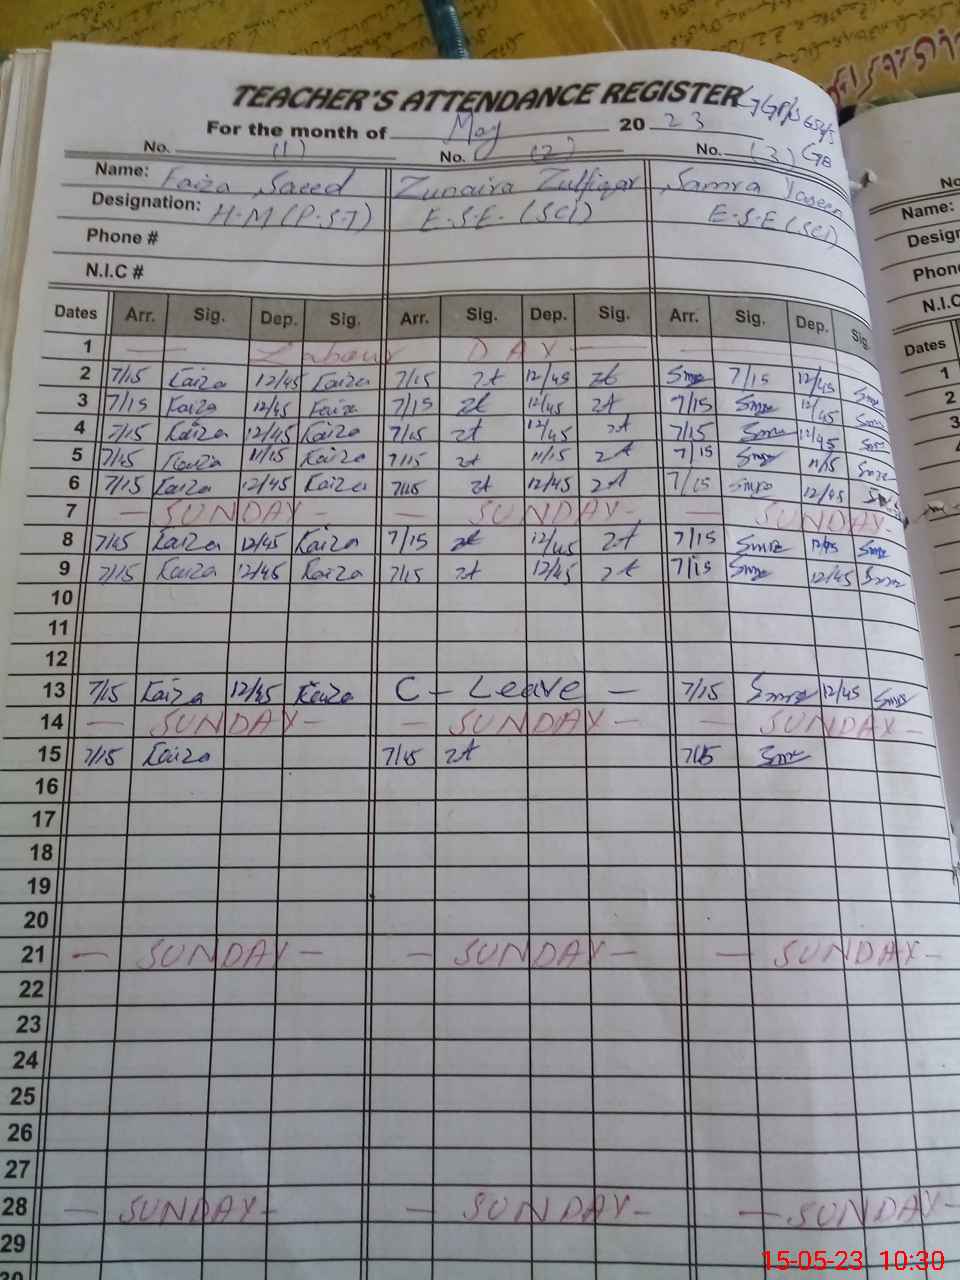 TEACHER'S ATTENDANCE REGISTER
For the month of May 2023
No. (1) No. (2) No. (3)
Name: Faiza Saeed Zunaira Zulfiqar Samra Yaseen
Designation: H-M(P.S.T) E.S.E. (SCI) E.S.E (SCI)
Phone #
N.I.C #
Dates Arr. Sig. Dep. Sig. Arr. Sig. Dep. Sig. Arr. Sig. Dep. Sig.
1 — Labour DAY —
2 7/15 Faiza 12/45 Faiza 7/15 zt 12/45 zt Smre 7/15 12/45 Smre
3 7/15 Faiza 12/45 Faiza 7/15 zt 12/45 zt 7/15 Smre 12/45 Smre
4 7/15 Faiza 12/45 Faiza 7/15 zt 12/45 zt 7/15 Smre 12/45 Smre
5 7/15 Faiza 11/15 Faiza 7/15 zt 11/15 zt 7/15 Smre 11/15 Smre
6 7/15 Faiza 12/45 Faiza 7/15 zt 12/45 zt 7/15 Smre 12/45
7 — SUNDAY — — SUNDAY — — SUNDAY —
8 7/15 Faiza 12/45 Faiza 7/15 zt 12/45 zt 7/15 Smre 12/45 Smre
9 7/15 Faiza 12/45 Faiza 7/15 zt 12/45 zt 7/15 Smre 12/45 Smre
10
11
12
13 7/15 Faiza 12/45 Faiza C - Leave — 7/15 Smre 12/45 Smre
14 — SUNDAY — — SUNDAY — — SUNDAY —
15 7/15 Faiza 7/15 zt 7/15 Smre
16
17
18
19
20
21 — SUNDAY — — SUNDAY — — SUNDAY —
22
23
24
25
26
27
28 — SUNDAY — — SUNDAY — — SUNDAY —
29
30
No
Name:
Design
Phon
N.I.C
Dates
1
2
3
15-05-23 10:30